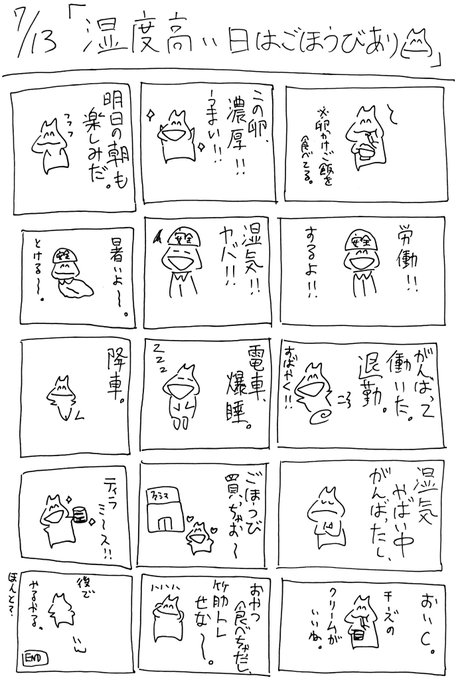 7/13「湿度高い日はごほうびあり」
※卵かけご飯を
食べてる。
この卵、
濃厚!!
うまい!!
明日の朝も
楽しみだ。
労働!!
するよ!!
安全
湿気!!
ヤバ!!
安全
暑いよ〜。
とける〜。
安全
がんばって
働いた。
退勤。
すばやく!!
電車
爆睡。
ZZZ
降車。
湿気
やばい中
がんばったし、
ごほうび
買っちゃお〜
ティラ
ミース!!
おいC。
チーズの
クリームが
いいね。
おやつ
食べちゃだし、
筋トレ
せな〜。
後で
やるやる。
ほんと?
END